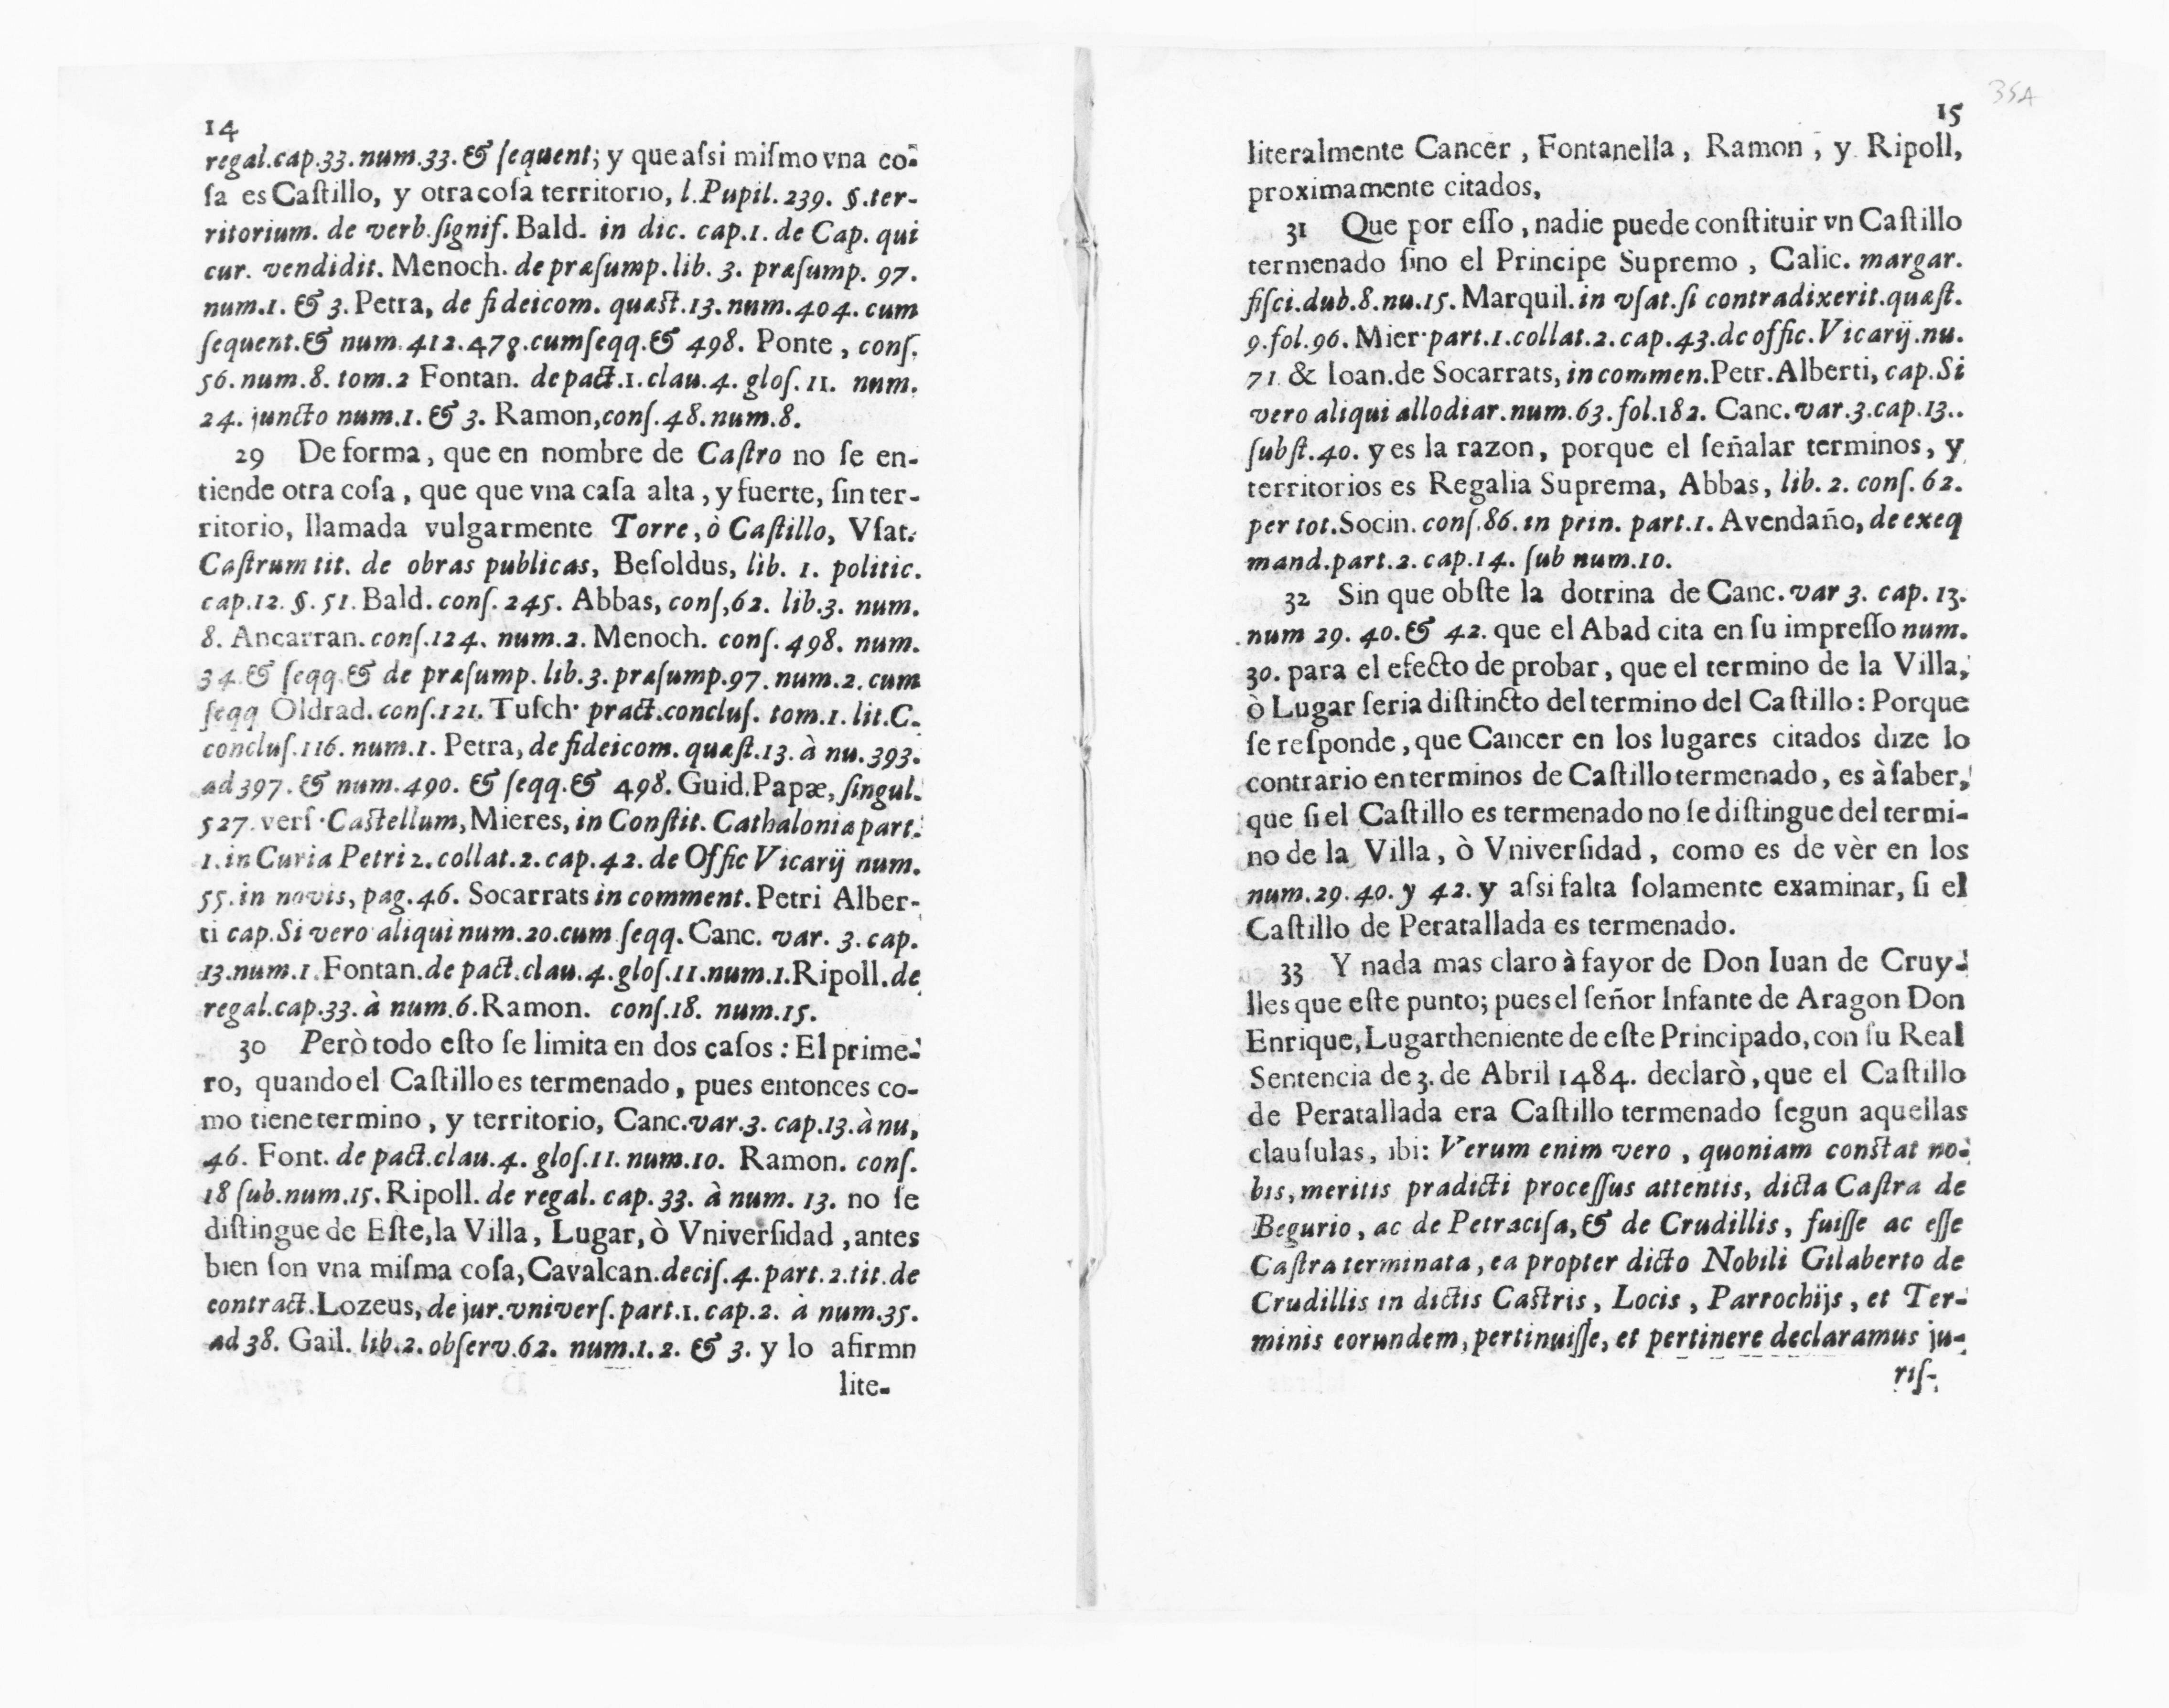 14
regal.cap.33.num.33.& ſequent; y que aſsi miſmo vna co-
ſa es Caſtillo, y otra coſa territorio, l.Pupil.239. §.ter-
ritorium. de verb.ſignif. Bald. in dic. cap.1. de Cap. qui
cur. vendidit. Menoch. de præſump.lib. 3. præſump. 97.
num.1. & 3. Petra, de fideicom. quæst.13.num.404. cum
ſequent.& num.412.478.cumſeqq.& 498. Ponte, conſ.
56.num.8. tom.2 Fontan. de pact.1.clau.4. gloſ.11. num.
24. juncto num.1. & 3. Ramon,conſ.48.num.8.
29 De forma, que en nombre de Caſtro no ſe en-
tiende otra coſa, que que vna caſa alta, y fuerte, ſin ter-
ritorio, llamada vulgarmente Torre, ò Caſtillo, Vſat.
Caſtrum tit. de obras publicas, Beſoldus, lib. 1. politic.
cap.12. §. 51. Bald. conſ. 245. Abbas, conſ,62. lib.3. num.
8. Ancarran. conſ.124. num.2. Menoch. conſ. 498. num.
34.& ſeqq.& de præſump. lib.3.præſump.97.num.2.cum
ſeqq Oldrad. conſ.121. Tuſch· pract.concluſ. tom.1. lit.C.
concluſ.116. num.1. Petra, de fideicom. quæſt.13. à nu.393.
ad 397. & num.490. & ſeqq.& 498. Guid.Papæ, ſingul.
527. verſ·Castellum, Mieres, in Conſtit. Cathaloniæ part.
1.in Curia Petri 2. collat.2. cap.42. de Offic Vicarij num.
55. in novis, pag.46. Socarrats in comment. Petri Alber-
ti cap.Si vero aliqui num.20.cum ſeqq. Canc. var. 3. cap.
13.num.1. Fontan.de pact.clau.4.gloſ.11.num.1.Ripoll.de
regal.cap.33. à num.6.Ramon. conſ.18. num.15.
30 Però todo eſto ſe limita en dos caſos: El prime-
ro, quando el Caſtillo es termenado, pues entonces co-
mo tiene termino, y territorio, Canc.var.3. cap.13.à nu,
46. Font. de pact.clau.4. gloſ.11. num.10. Ramon. conſ.
18 ſub.num.15. Ripoll. de regal. cap. 33. à num. 13. no ſe
diſtingue de Eſte, la Villa, Lugar, ò Vniverſidad, antes
bien ſon vna miſma coſa, Cavalcan.deciſ.4.part.2.tit.de
contract. Lozeus, de jur.vniverſ.part.1. cap.2. à num.35.
ad 38. Gail. lib.2. obſerv.62. num.1.2. & 3. y lo afirmn
lite-
35A
15
literalmente Cancer, Fontanella, Ramon, y Ripoll,
proximamente citados,
31 Que por eſſo, nadie puede conſtituir vn Caſtillo
termenado ſino el Principe Supremo, Calic. margar.
fiſci.dub.8.nu.15. Marquil.in vſat.ſi contradixerit.quæſt.
9.fol.96. Mier·part.1.collat.2.cap.43.de offic.Vicarij.nu.
71. & Ioan.de Socarrats, in commen.Petr.Alberti, cap.Si
vero aliqui allodiar.num.63.fol.182. Canc.var.3.cap.13..
ſubſt.40. y es la razon, porque el ſeñalar terminos, y
territorios es Regalia Suprema, Abbas, lib. 2. conſ. 62.
per tot.Socin. conſ.86. in prin. part.1. Avendaño, de exeq
mand.part.2. cap.14. ſub num.10.
32 Sin que obſte la dotrina de Canc.var 3. cap. 13.
num 29. 40.& 42. que el Abad cita en ſu impreſſo num.
30. para el efecto de probar, que el termino de la Villa,
ò Lugar ſeria diſtincto del termino del Caſtillo: Porque
ſe reſponde, que Cancer en los lugares citados dize lo
contrario en terminos de Caſtillo termenado, es à ſaber,
que ſi el Caſtillo es termenado no ſe diſtingue del termi-
no de la Villa, ò Vniverſidad, como es de vèr en los
num.29.40. y 42. y aſsi falta ſolamente examinar, ſi el
Caſtillo de Peratallada es termenado.
33 Y nada mas claro à fayor de Don Iuan de Cruy-
lles que eſte punto; pues el ſeñor Infante de Aragon Don
Enrique, Lugartheniente de eſte Principado, con ſu Real
Sentencia de 3. de Abril 1484. declarò, que el Caſtillo
de Peratallada era Caſtillo termenado ſegun aquellas
clauſulas, ibi: Verum enim vero, quoniam constat no-
bis, meritis pradicti proceſſus attentis, dicta Caſtra de
Begurio, ac de Petraciſa, & de Crudillis, fuiſſe ac eſſe
Caſtra terminata, ea propter dicto Nobili Gilaberto de
Crudillis in dictis Castris, Locis, Parrochijs, et Ter-
minis eorundem, pertinuiſſe, et pertinere declaramus ju-
riſ-